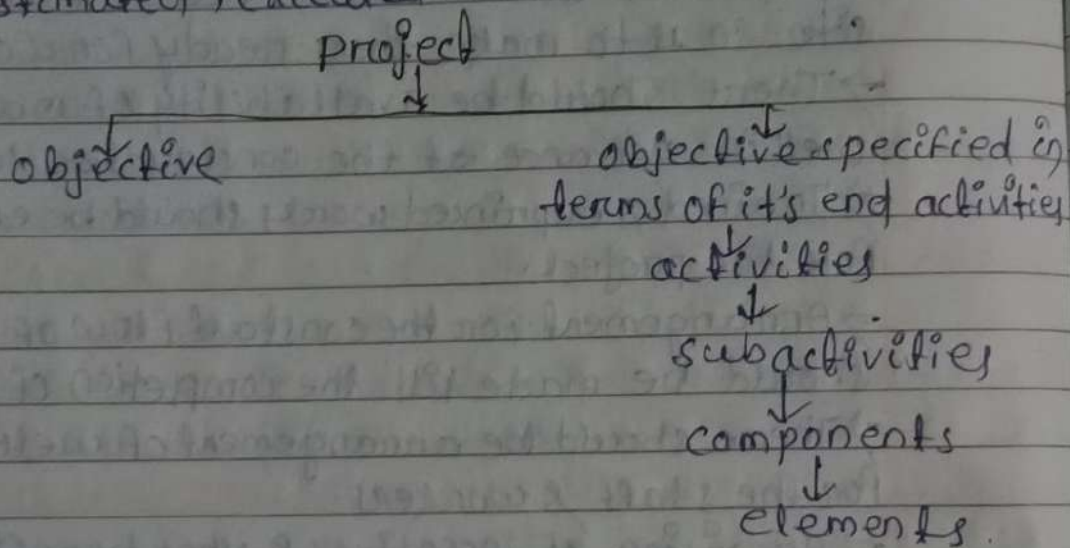 project
objective
objective specified in
terms of it's end activities
activities
subactivities
components
elements.